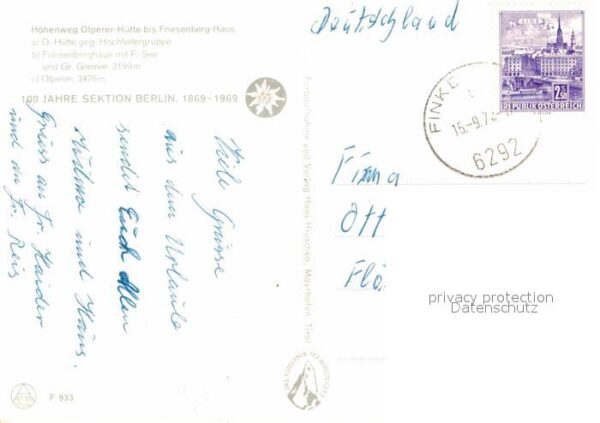 Höhenweg Olperer-Hütte bis Friesenberg-Haus
a) O. Hütte geg. Hochfeilergruppe
b) Friesenberghaus mit F. See
und Gr. Greiner, 3199m
c) Olperer, 3476m
100 JAHRE SEKTION BERLIN. 1869-1969
Viele Grüsse
aus dem Urlaube
sendet Euch Allen
und Hans.
Gruss an Fr. Haider
und an Fr. Reis
F 933
Verlag Hans Hruschka, Mayrhofen, Tirol
Deutschland
WIEN
2.50
REPUBLIK ÖSTERREICH
FINKE
15.-9.7
6292
Firma
Ott
Flö
privacy protection
Datenschutz